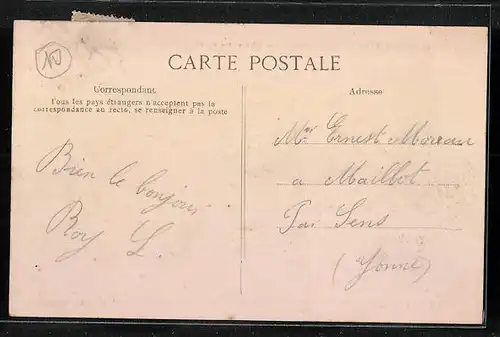 10
CARTE POSTALE
Correspondance
Tous les pays étrangers n'acceptent pas la
correspondance au recto, se renseigner à la poste
Adresse
Bien le bonjour
Roy. L.
Mr Ernest Moreau
a Maillot
Par Sens
(Yonne)